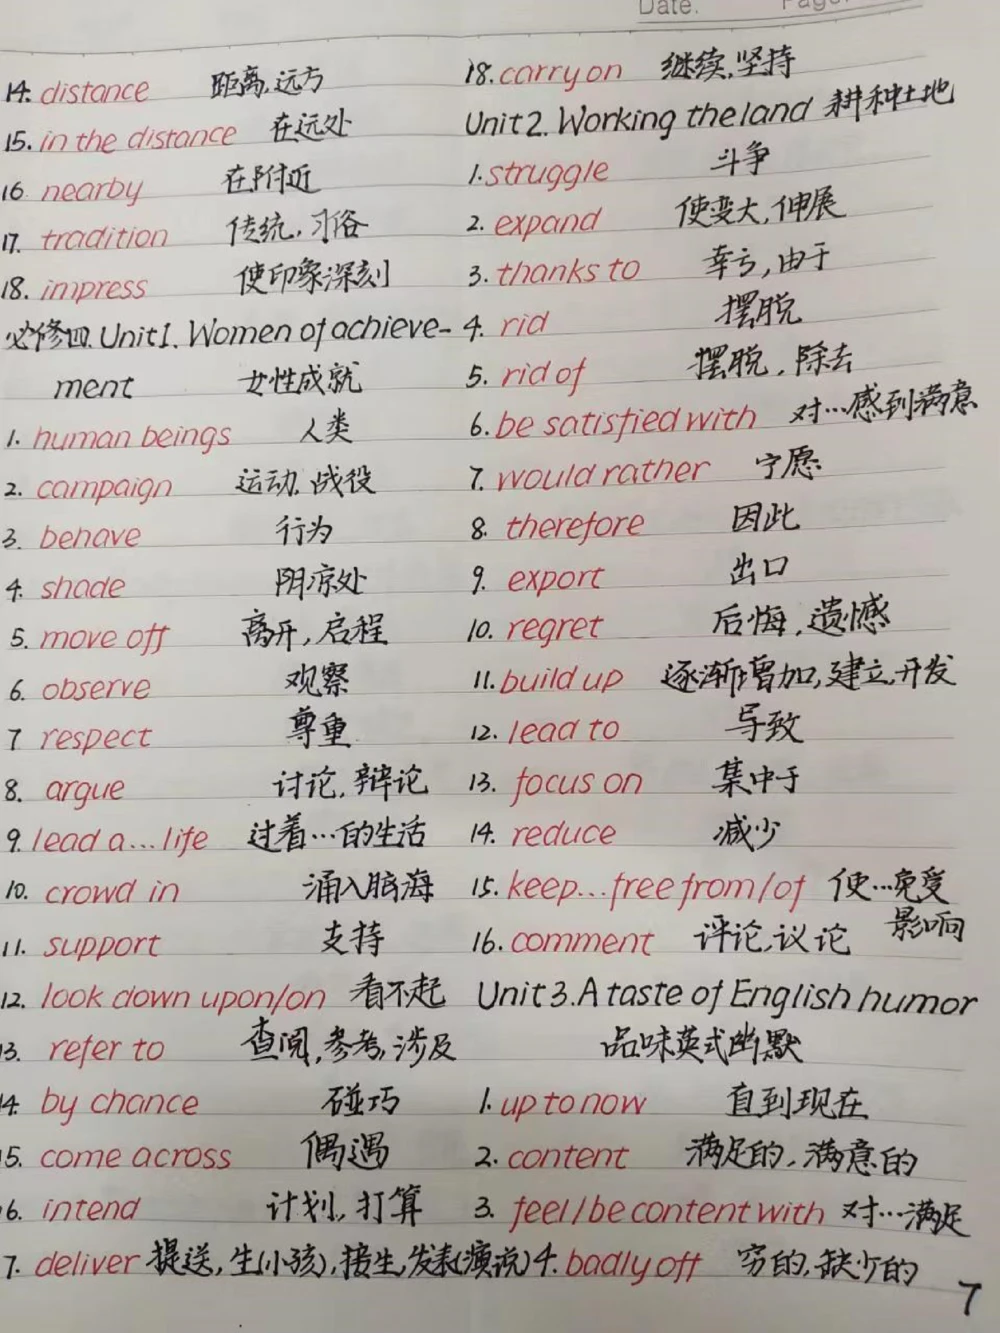 Date.
Page.
14. distance 距离,远方
15. in the distance 在远处
16 nearby 在附近
17. tradition 传统,习俗
18. impress 使印象深刻
必修四.Unit1. Women of achieve-
ment 女性成就
1. human beings 人类
2. campaign 运动,战役
3. behave 行为
4. shade 阴凉处
5. move off 离开,启程
6. observe 观察
7 respect 尊重
8. argue 讨论,辩论
9. lead a...life 过着…的生活
10. crowd in 涌入脑海
11. support 支持
12. look down upon/on 看不起
13. refer to 查阅,参考,涉及
14. by chance 碰巧
5. come across 偶遇
6. intend 计划,打算
7. deliver 提送,生(小孩),接生,发表(演说)
18. carry on 继续,坚持
Unit2. Working the land 耕种土地
1. struggle 斗争
2. expand 使变大,伸展
3. thanks to 幸亏,由于
4. rid 摆脱
5. rid of 摆脱,除去
6. be satisfied with 对…感到满意
7. would rather 宁愿
8. therefore 因此
9. export 出口
10. regret 后悔,遗憾
11. build up 逐渐增加,建立,开发
12. lead to 导致
13. focus on 集中于
14. reduce 减少
15. keep...free from/of 使…免受
影响
16. comment 评论,议论
Unit3. A taste of English humor
品味英式幽默
1. up to now 直到现在
2. content 满足的,满意的
3. feel/be content with 对…满足
4. badly off 穷的,缺少的
7